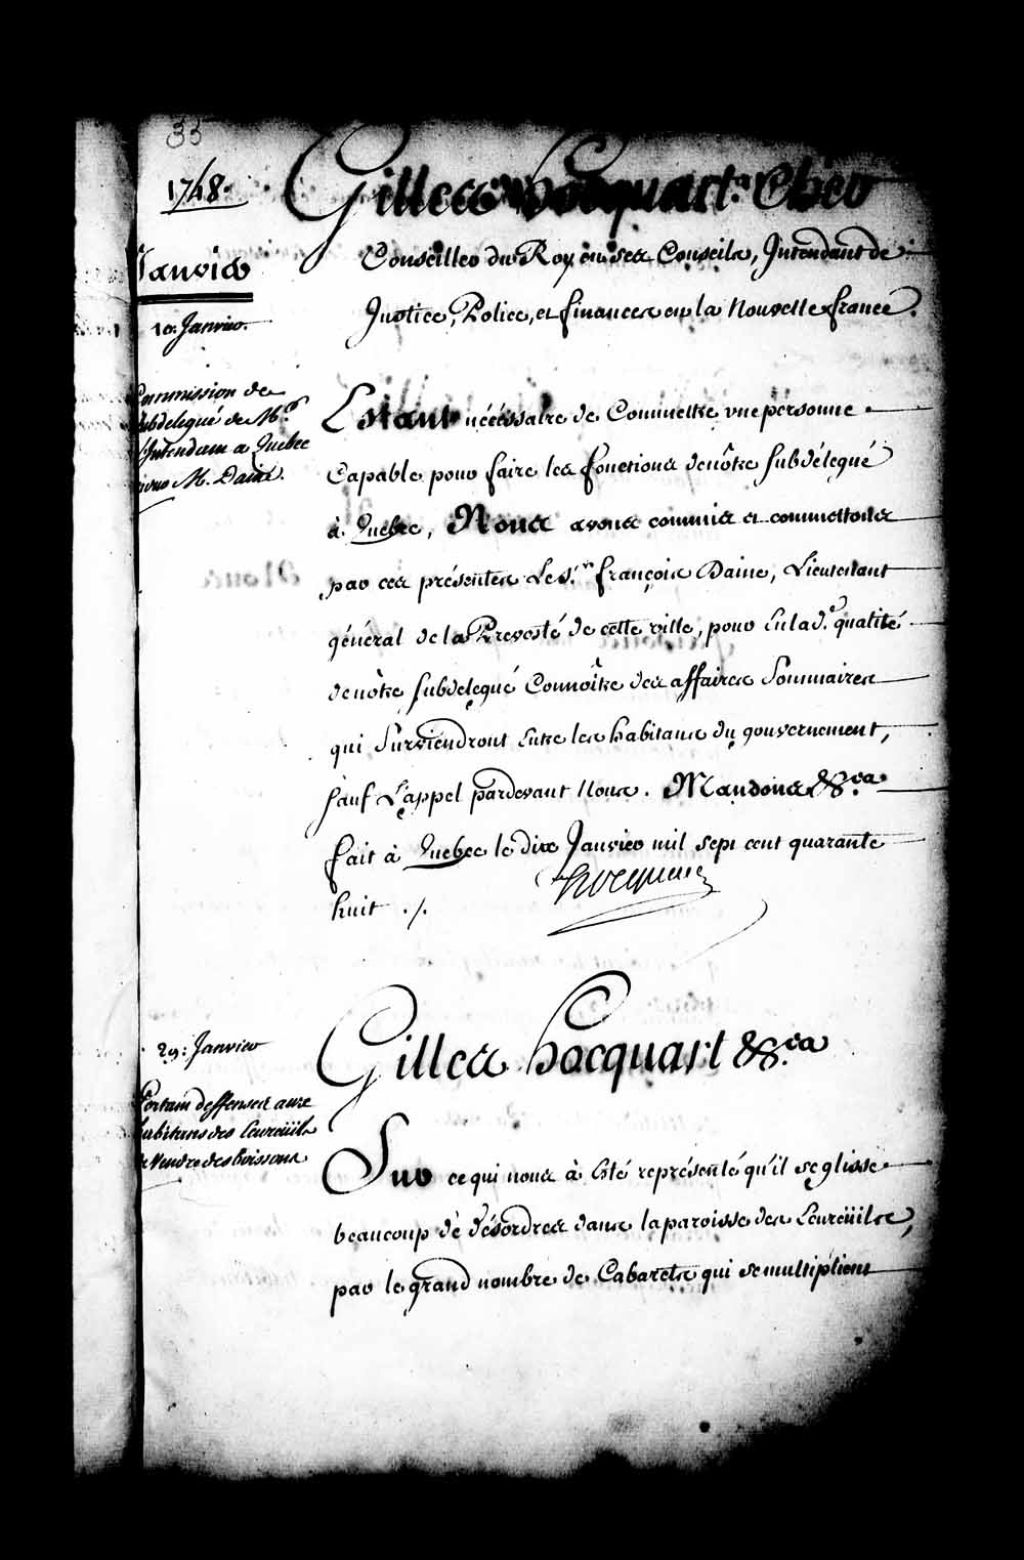 35
1748.
Janvier
10. Janvier.
Commission de
subdelegué de Mr.
l'Intendant a Quebec
pour M. Daine.
Gilles hocquart. Cher
Conseiller du Roy en ses Conseils, Intendant de
Justice, Police, et finances en la Nouvelle france.
Estant nécéssaire de Commettre vne personne
Capable pour faire les fonctions denôtre subdélegué
à Quebec, Nous avons commis et commettons
par ces présentes Le S.r françois Daine, Lieutenant
général de la Prevosté de cette ville, pour En lad.e qualité
denôtre subdelegué Connoître des affaires Sommaires
qui Surviendront Entre les habitans du gouvernement,
sauf L'appel pardevant Nous. Mandons &c.a
fait à Quebec le dix Janvier mil sept cent quarante
huit ./.
hocquart
29: Janvier
Portant deffenses aux
habitans des Eureüils
de Vendre des boissons
Gilles hocquart &c.a
Sur ce qui nous à Eté représenté qu'il se glisse
beaucoup dè désordres dans la paroisse des Eureüils,
par le grand nombre de Cabarets qui se multiplient